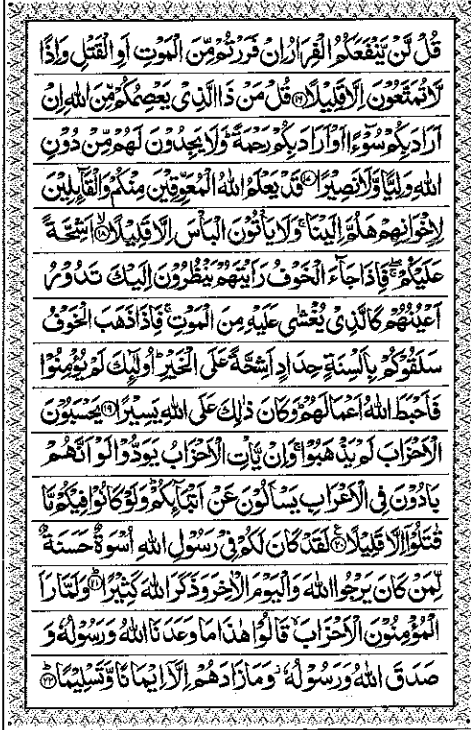 قُلْ لَّنْ يَّنْفَعَكُمُ الْفِرَارُ اِنْ فَرَرْتُمْ مِّنَ الْمَوْتِ اَوِ الْقَتْلِ وَاِذًا
لَّا تُمَتَّعُوْنَ اِلَّا قَلِيْلًا ﴿۱۶﴾ قُلْ مَنْ ذَا الَّذِيْ يَعْصِمُكُمْ مِّنَ اللّٰهِ اِنْ
اَرَادَ بِكُمْ سُوْٓءًا اَوْ اَرَادَ بِكُمْ رَحْمَةً ؕ وَلَا يَجِدُوْنَ لَهُمْ مِّنْ دُوْنِ
اللّٰهِ وَلِيًّا وَّلَا نَصِيْرًا ﴿۱۷﴾ قَدْ يَعْلَمُ اللّٰهُ الْمُعَوِّقِيْنَ مِنْكُمْ وَالْقَآئِلِيْنَ
لِاِخْوَانِهِمْ هَلُمَّ اِلَيْنَا ۚ وَلَا يَاْتُوْنَ الْبَاْسَ اِلَّا قَلِيْلًا ﴿۱۸﴾ اَشِحَّةً
عَلَيْكُمْ ۖ فَاِذَا جَآءَ الْخَوْفُ رَاَيْتَهُمْ يَنْظُرُوْنَ اِلَيْكَ تَدُوْرُ
اَعْيُنُهُمْ كَالَّذِيْ يُغْشٰى عَلَيْهِ مِنَ الْمَوْتِ ۚ فَاِذَا ذَهَبَ الْخَوْفُ
سَلَقُوْكُمْ بِاَلْسِنَةٍ حِدَادٍ اَشِحَّةً عَلَى الْخَيْرِ ؕ اُولٰٓئِكَ لَمْ يُؤْمِنُوْا
فَاَحْبَطَ اللّٰهُ اَعْمَالَهُمْ ؕ وَكَانَ ذٰلِكَ عَلَى اللّٰهِ يَسِيْرًا ﴿۱۹﴾ يَحْسَبُوْنَ
الْاَحْزَابَ لَمْ يَذْهَبُوْا ۚ وَاِنْ يَّاْتِ الْاَحْزَابُ يَوَدُّوْا لَوْ اَنَّهُمْ
بَادُوْنَ فِي الْاَعْرَابِ يَسْاَلُوْنَ عَنْ اَنْۢبَآئِكُمْ ؕ وَلَوْ كَانُوْا فِيْكُمْ مَّا
قٰتَلُوْٓا اِلَّا قَلِيْلًا ﴿۲۰﴾ لَقَدْ كَانَ لَكُمْ فِيْ رَسُوْلِ اللّٰهِ اُسْوَةٌ حَسَنَةٌ
لِّمَنْ كَانَ يَرْجُوا اللّٰهَ وَالْيَوْمَ الْاٰخِرَ وَذَكَرَ اللّٰهَ كَثِيْرًا ﴿۲۱﴾ وَلَمَّا رَاَ
الْمُؤْمِنُوْنَ الْاَحْزَابَ ۙ قَالُوْا هٰذَا مَا وَعَدَنَا اللّٰهُ وَرَسُوْلُهٗ وَ
صَدَقَ اللّٰهُ وَرَسُوْلُهٗ ؗ وَمَا زَادَهُمْ اِلَّآ اِيْمَانًا وَّتَسْلِيْمًا ﴿۲۲﴾